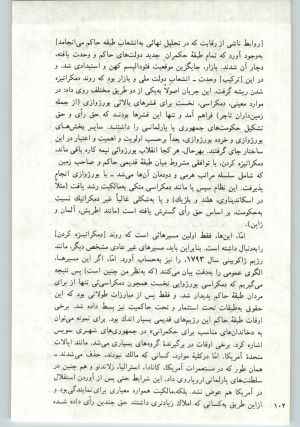 [روابط ناشی از رقابت که در تحلیل نهائی به‌انشعاب طبقهٔ حاکم می‌انجامد]
به‌وجود آورد که تمام طبقهٔ حکمران جدید دولت‌های حاکم و وحدت یافته،
دچار آن شدند. بازار، جایگزین موقعیت فئودالیسم کهن و استبدادی شد. و
در این [ترکیب] وحدت ـ انشعاب دولت ملی و بازار بود که روند دمکراتیزه
شدن ریشه گرفت. این جریان اصولاً به‌یکی از دو طریق مختلف روی داد: در
موارد معینی، دمکراسی، نخست برای قشرهای بالائی بورژوازی (از جمله
زمین‌داران تاجر) فراهم آمد و تنها این قشرها بودند که حق رأی و حق
تشکیل حکومت‌های جمهوری یا پارلمانی را داشتند. سایر بخش‌های
بورژوازی و خرده بورژوازی، بعداً برحسب اولویت و اهمیت و اعتبار در این
ساختار جای گرفتند. بهرحال، هر کجا انقلاب بورژوائی نیمه کاره باقی ماند،
دمکراتیزه کردن، با توافقی مشروط میان طبقهٔ قدیمی حاکم و صاحب زمین
که شامل سلسله مراتب هرمی و دودمان آن‌ها می‌شد ـ با بورژوازی انجام
پذیرفت. این نظام سپس یا مانند دمکراسی متکی به‌مالکیت رشد یافت (مثلاً
در اسکاندیناوی، هلند و بلژیک) و یا به‌شکلی غالباً غیر دمکراتیک نسبت
به‌حکومت، بر اساس حق رأی گسترش یافته است (مانند اطریش، آلمان و
ژاپن).
امّا، این‌ها، فقط اولین مسیرهائی است که روند [دمکراتیزه کردن]
را به‌دنبال داشته است. بنابراین باید، مسیرهای غیر عادی مشخص دیگر، مانند
رژیم ژاکوبینی سال ۱۷۹۳، را نیز به‌حساب آورد. امّا، اگر این مسیرها،
الگوی عمومی را به‌دقت بیان می‌کنند (که به‌نظر من چنین است) پس نتیجه
می‌گیریم که دمکراسی بورژوایی نخست همچون دمکراسی‌ئی تنها از برای
مردان طبقهٔ حاکم پدیدار شد، و فقط پس از مبارزات طولانی بود که این
حقوق به‌طبقات تحت استثمار و تحت حاکمیت نیز بسط داده شد. برخی
اوقات طبقهٔ حاکم این رژیم‌های قدیمی بسیار اندک بود. برای نمونه می‌توان
به «خاندان‌های مناسب برای حکمرانی» در جمهوری‌های شهری سویس
اشاره کرد. برخی اوقات در برگیرندهٔ گروه‌های بسیاری می‌شد، مانند ایالات
متحدهٔ آمریکا. امّا درکلیهٔ موارد، کسانی که مالک نبودند، حذف می‌شدند ـ
همان طور که در مستعمرات آمریکا، کانادا، استرالیا، زلاندنو و هم چنین در
سلطنت‌های پارلمانی اروپا روی داد. این شرایط حتی پس از آوردن استقلال
در آمریکا هم عوض نشد، بلکه، مالکیت همواره معیاری برای نمایندگی بود و
از این طریق به‌کسانی که املاک زیادتری داشتند حق چندین رأی داده شده
۱۰۲